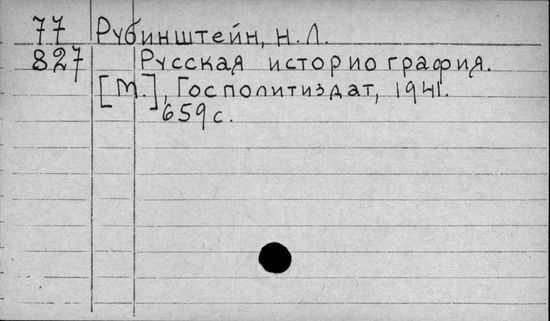 77 Рубинштейн, Н.Л.
827 Русская историография.
[М.], Госполитиздат, 1941.
659с.